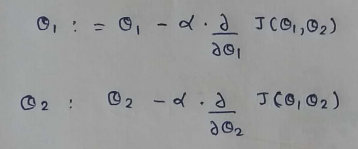 θ₁ := θ₁ - α · ∂/∂θ₁ J(θ₁,θ₂)
θ₂ : θ₂ - α · ∂/∂θ₂ J(θ₁θ₂)